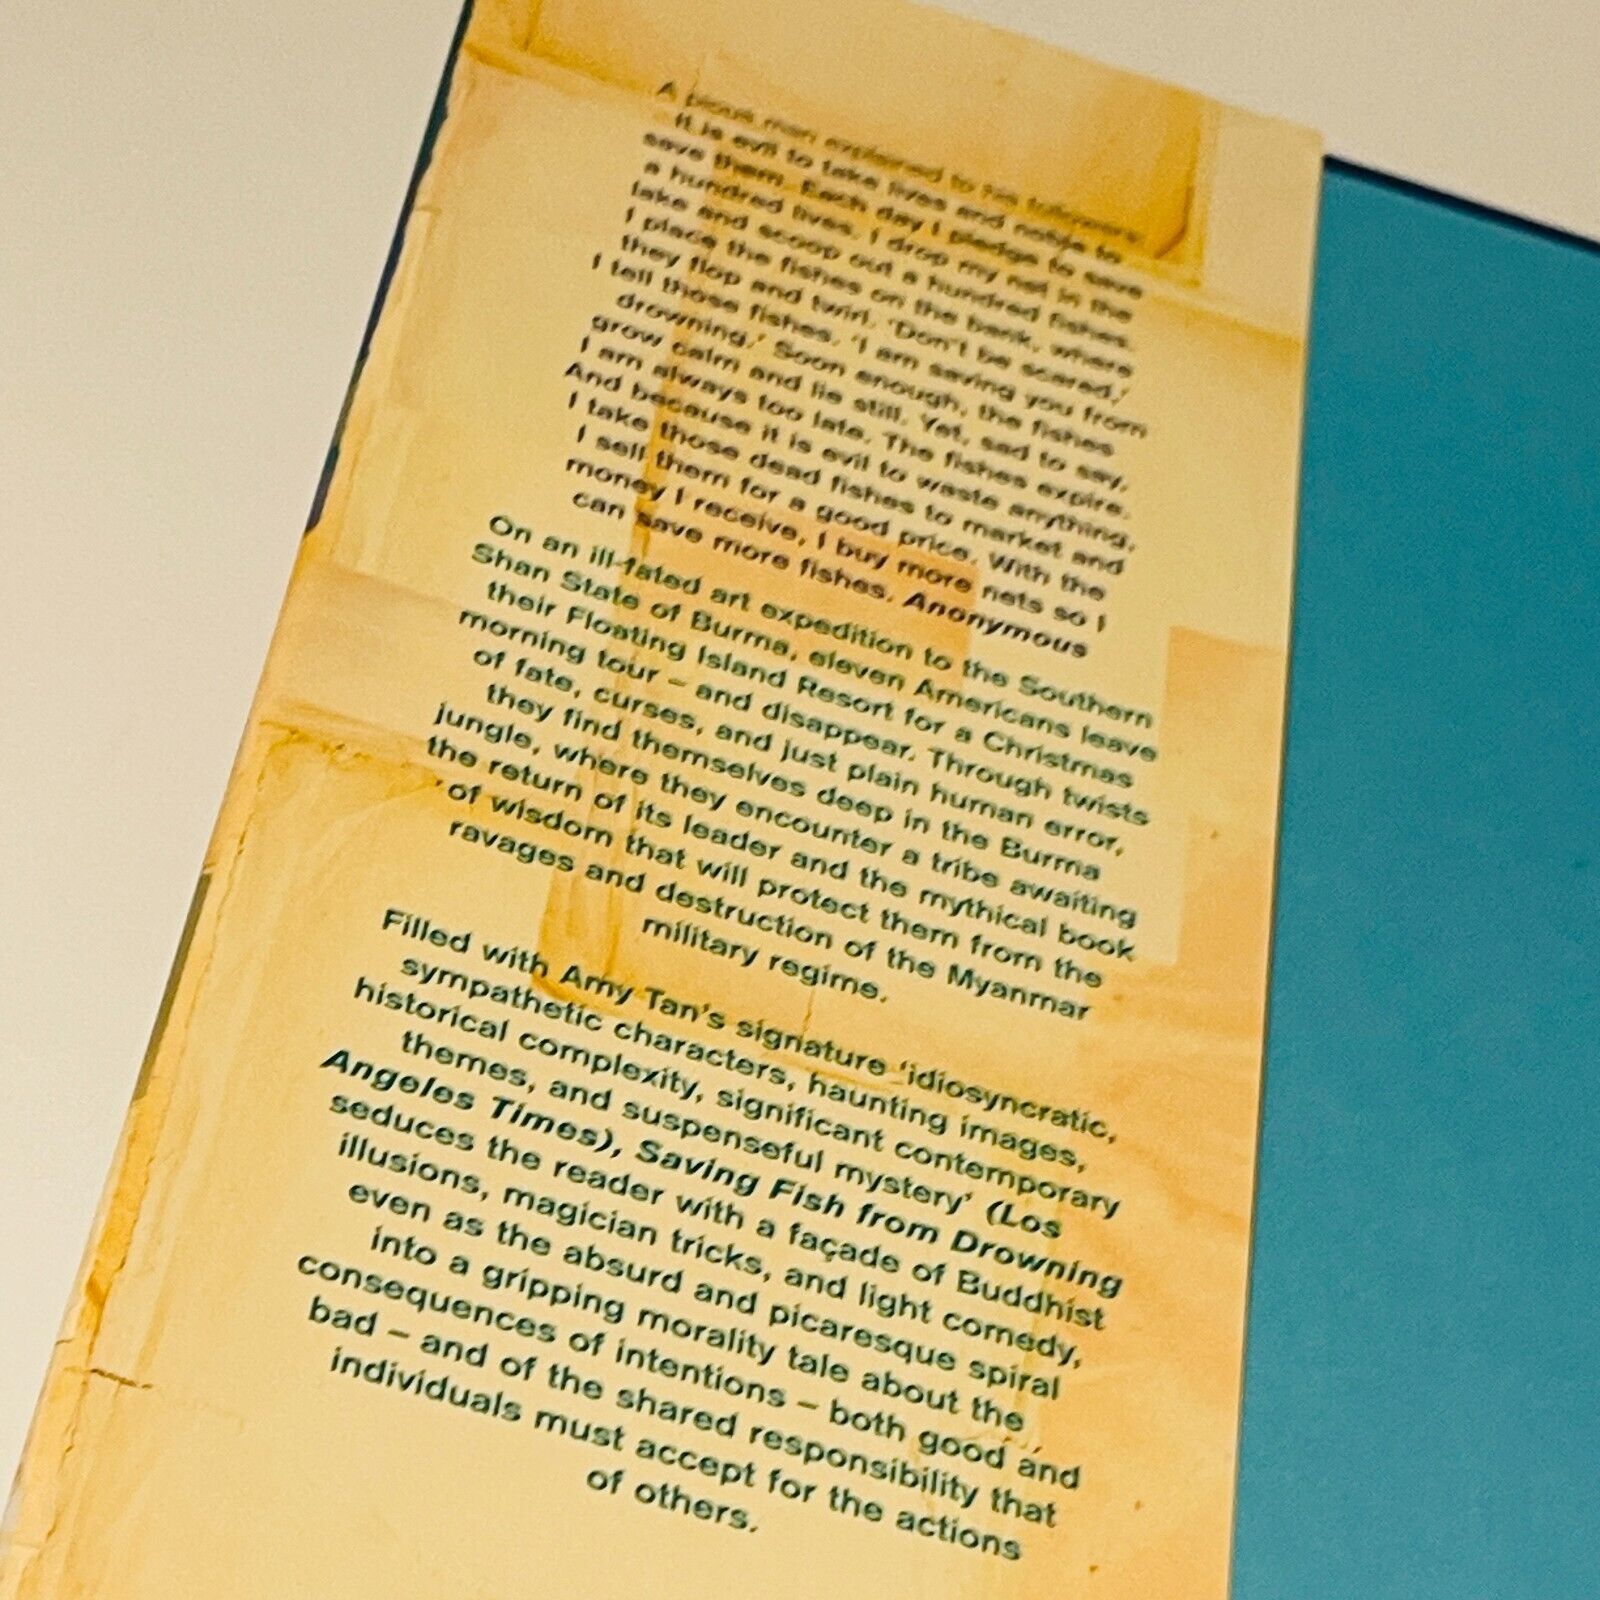 A pious man explained to his followers:
It is evil to take lives and noble to
save them. Each day I pledge to save
a hundred lives. I drop my net in the
lake and scoop out a hundred fishes.
I place the fishes on the bank, where
they flop and twirl. 'Don't be scared,'
I tell those fishes. 'I am saving you from
drowning.' Soon enough, the fishes
grow calm and lie still. Yet, sad to say,
I am always too late. The fishes expire.
And because it is evil to waste anything,
I take those dead fishes to market and
I sell them for a good price. With the
money I receive, I buy more nets so I
can save more fishes. Anonymous
On an ill-fated art expedition to the Southern
Shan State of Burma, eleven Americans leave
their Floating Island Resort for a Christmas
morning tour – and disappear. Through twists
of fate, curses, and just plain human error,
they find themselves deep in the Burma
jungle, where they encounter a tribe awaiting
the return of its leader and the mythical book
of wisdom that will protect them from the
ravages and destruction of the Myanmar
military regime.
Filled with Amy Tan's signature 'idiosyncratic,
sympathetic characters, haunting images,
historical complexity, significant contemporary
themes, and suspenseful mystery' (Los
Angeles Times), Saving Fish from Drowning
seduces the reader with a façade of Buddhist
illusions, magician tricks, and light comedy,
even as the absurd and picaresque spiral
into a gripping morality tale about the
consequences of intentions – both good and
bad – and of the shared responsibility that
individuals must accept for the actions
of others.